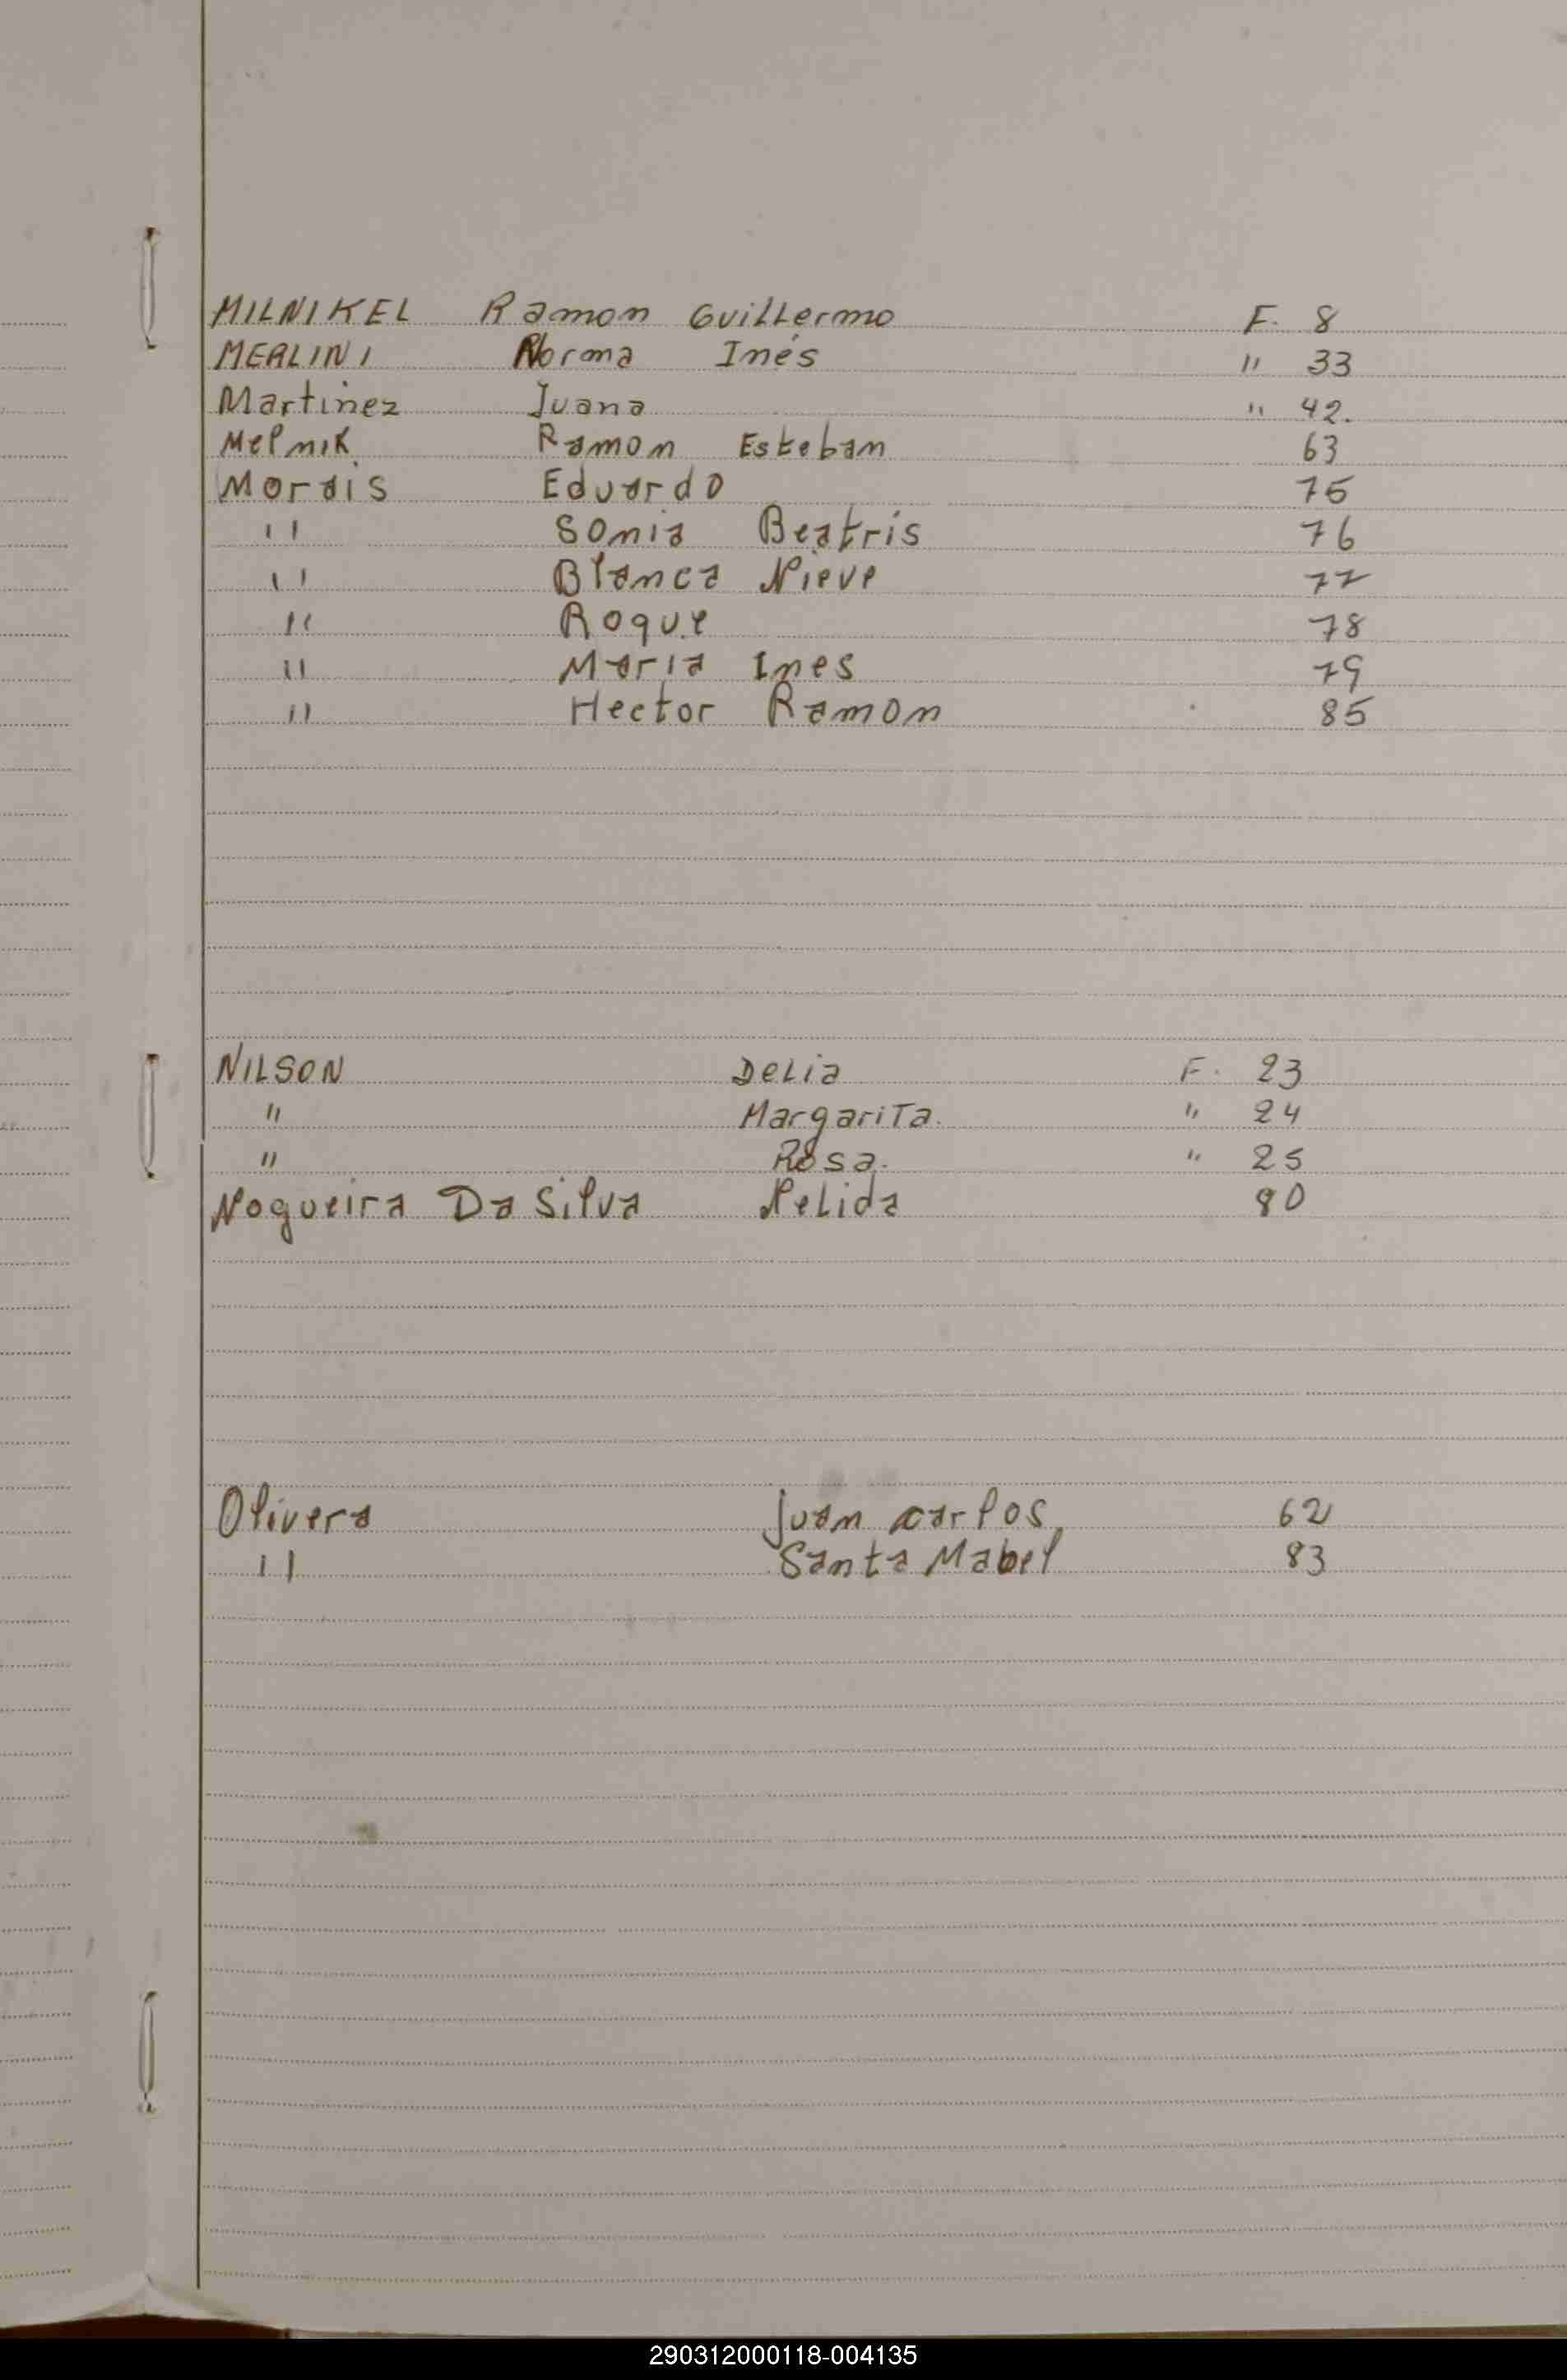 MILNIKEL Ramon Guillermo F. 8
MERLINI Norma Inés " 33
Martinez Juana " 42.
Melnik Ramon Esteban 63
Morais Eduardo 75
" Sonia Beatris 76
" Blanca Nieve 77
" Roque 78
" Maria Ines 79
" Hector Ramon 85
NILSON Delia F. 23
" Margarita. " 24
" Rosa. " 25
Nogueira Da Silva Nelida 80
Olivera Juan Carlos 62
" Santa Mabel 83
290312000118-004135